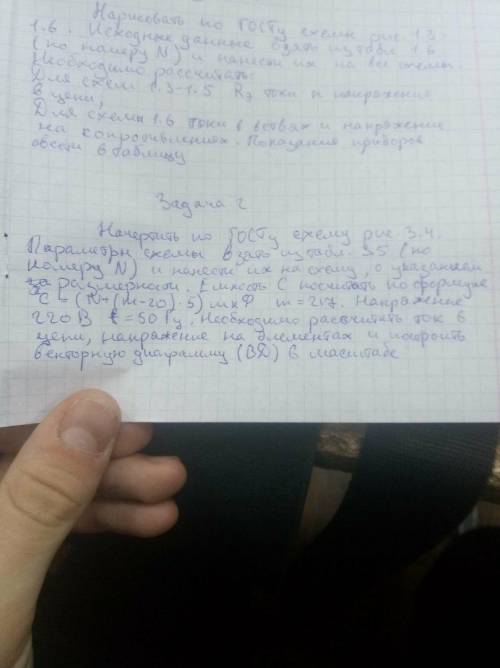 Нарисовать по ГОСТу схемы рис 1.3-
1.6. Исходные данные взять из табл 1.6
(по номеру N) и нанести их на все схемы.
Необходимо рассчитать:
Для схем 1.3-1.5 Rэ токи и напряжение
в цепи,
Для схемы 1.6 токи в ветвях и напряжение
на сопротивлениях. Показания приборов
свести в таблицу
Задача 2
Начертить по ГОСТу схему рис. 3.4.
Параметры схемы взять из табл. 3.5 (по
номеру N) и нанести их на схему, с указанием
размерности. Ёмкость C посчитать по формуле
C = (N+(m-20).5) мкФ m = 217. Напряжение
220 В f = 50 Гц. Необходимо рассчитать ток в
цепи, напряжение на элементах и построить
векторную диаграмму (ВД) в масштабе